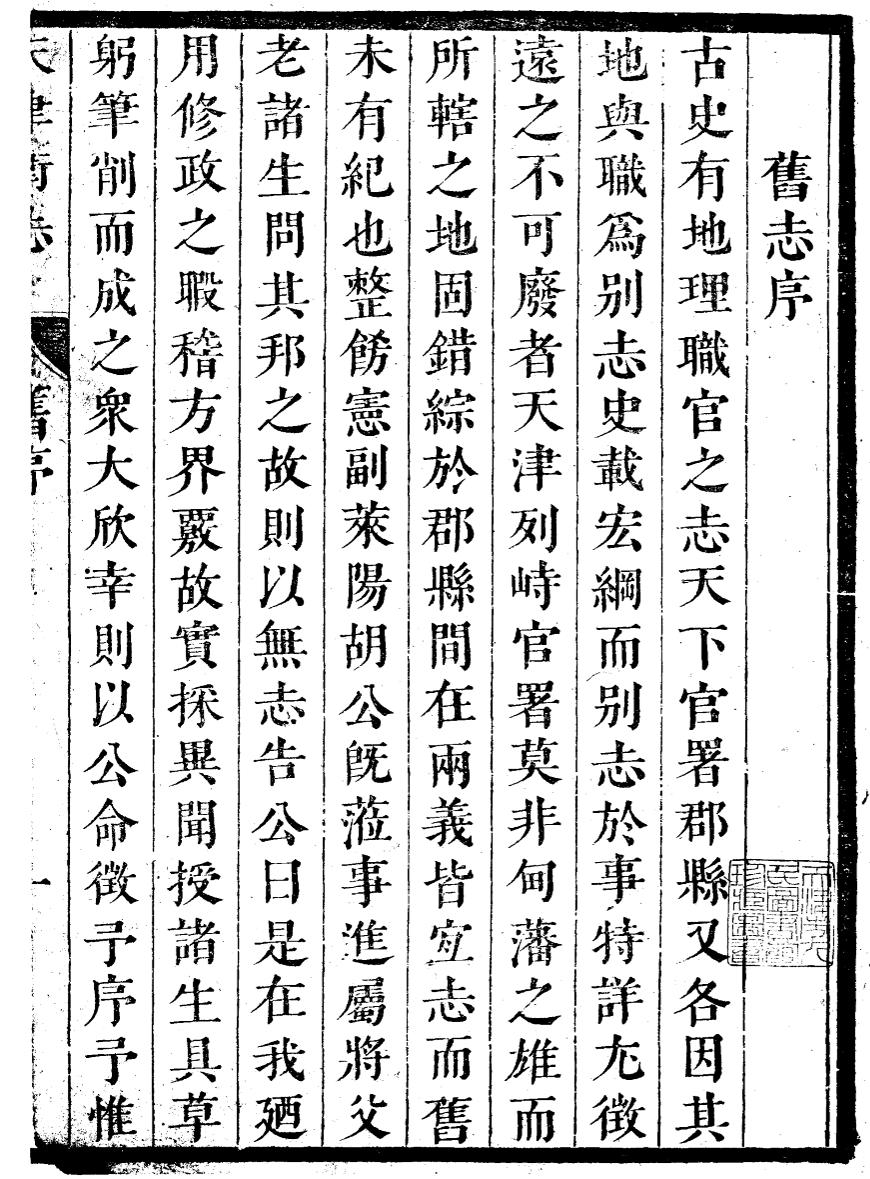 舊志序
古史有地理職官之志天下官署郡縣又各因其
地與職爲別志史載宏綱而别志於事特詳尤徵
遠之不可廢者天津列峙官署莫非甸藩之雄而
所轄之地固錯綜於郡縣間在兩義皆宜志而舊
未有紀也整飭憲副萊陽胡公旣蒞事進屬將父
老諸生問其邦之故則以無志告公曰是在我廼
用修政之暇稽方界覈故實採異聞授諸生具草
躬筆削而成之衆大欣幸則以公命徵予序予惟
天津衛志
舊序
一